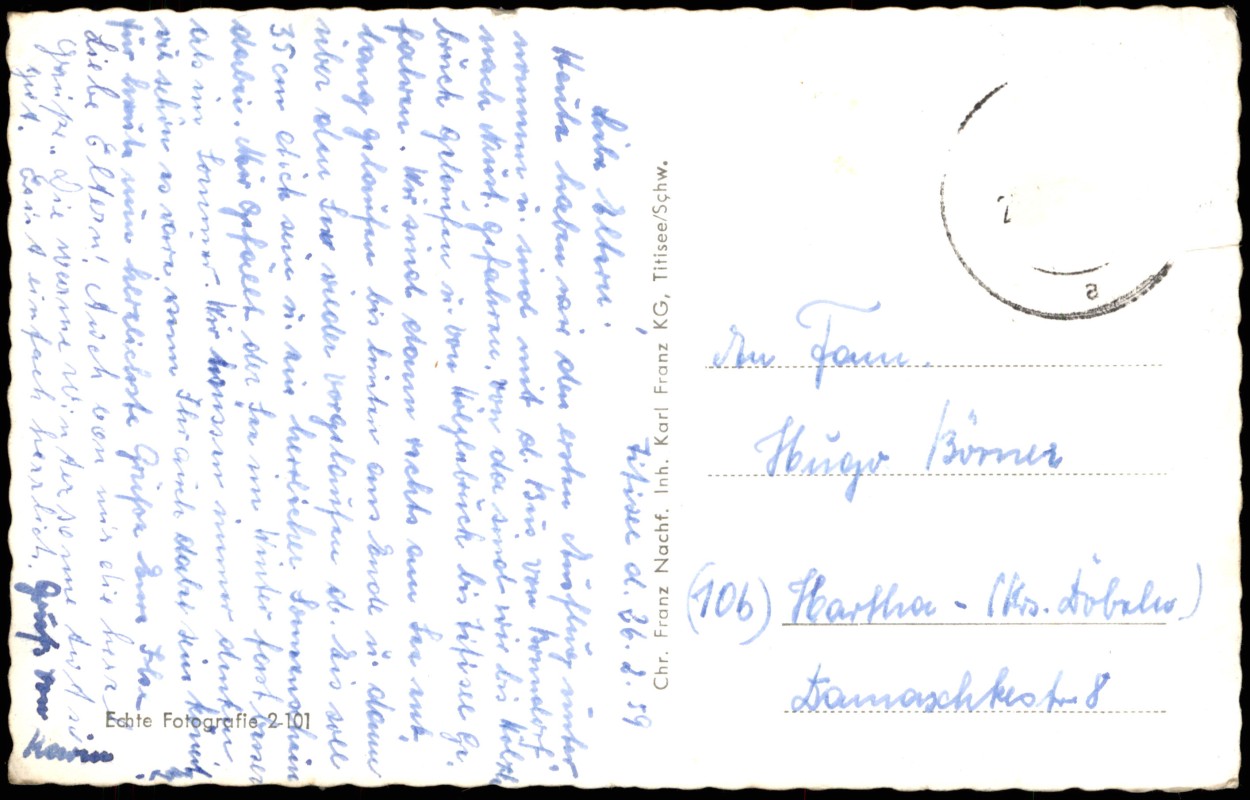 Titisee d. 26.2.59
Liebe Eltern!
Heute haben wir den ersten Ausflug unter
nommen u. sind mit d. Bus von Bonndorf
nach Neust. gefahren, von da sind wir bis Hölzle
bruck gelaufen u. von Hölzlebruck bis Titisee ge
fahren. Wir sind dann rechts am See ent
lang gelaufen bis hinten ans Ende u. dann
über den See wieder vorgelaufen d. Eis soll
35 cm dick sein u. ein herrlicher Sonnenschein
dabei. Mir gefällt der See im Winter fast besser
als im Sommer. Wir müssen immer denken
wie schön es wäre wenn Ihr auch dabei sein könnt
für heute nun herzlichste Grüße Eure Ilse
Liebe Eltern! Auch von mir die herz
Grüße. Die warme Wintersonne tut so
gut. Es ist einfach herrlich. Gruß von
Karin
Echte Fotografie 2-101
Chr. Franz Nachf. Inh. Karl Franz KG, Titisee/Schw.
a
An Fam.
Hugo Börner
(10b) Hartha - (Krs. Döbeln)
Damaschkestr. 8